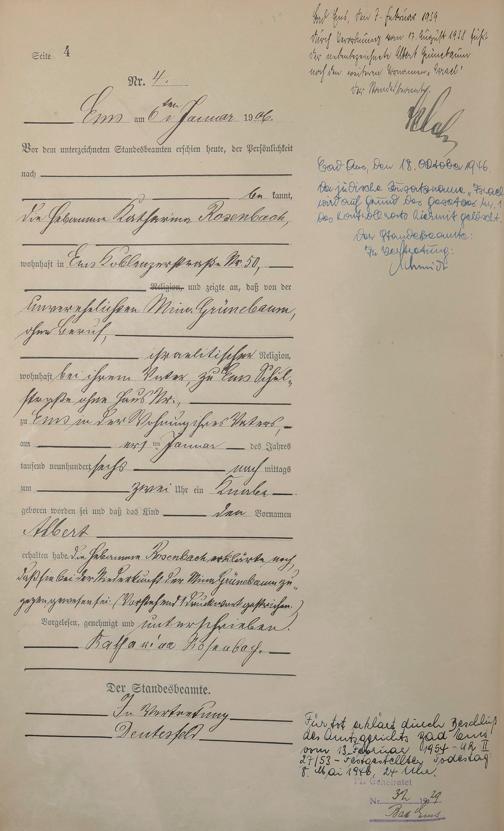 Seite 4
Nr. 4.
Ems am 6ten Januar 1906.
Vor dem unterzeichneten Standesbeamten erschien heute, der Persönlichkeit
nach
be kannt,
die Hebamme Katharina Rosenbach,
wohnhaft in Ems Koblenzerstraße Nr. 50,
Religion, und zeigte an, daß von der
unverehelichten Mina Grünebaum,
ohne Beruf,
israelitischer Religion,
wohnhaft bei ihrem Vater, zu Ems Schul-
straße ohne Haus Nr.,
zu Ems in der Wohnung ihres Vaters,
am ersten Januar des Jahres
tausend neunhundert sechs nach mittags
um zwei Uhr ein Knabe
geboren worden sei und daß das Kind den Vornamen
Albert
erhalten habe. Die Hebamme Rosenbach erklärte noch,
daß sie bei der Niederkunft der Mina Grünebaum zu-
gegen gewesen sei. (Vorstehend 1 Druckwort gestrichen.)
Vorgelesen, genehmigt und unterschrieben.
Katharina Rosenbach.
Der Standesbeamte.
In Vertretung
Bad Ems, den 7. Februar 1939
Durch Verordnung vom 17. August 1938 führt
der nebenbezeichnete Albert Grünebaum
noch den weiteren Vornamen „Israel“
Der Standesbeamte.
Bad Ems, den 18. Oktober 1946
Der jüdische Zusatzname „Israel
wird auf Grund des Gesetzes Nr. 1
des Kontrollrats hiermit gelöscht.
Der Standesbeamte:
In Vertretung:
Schmidt
Für tot erklärt durch Beschluß
des Amtsgerichts Bad Ems
vom 13. Februar 1954 - UR II
27/53 - Festgestellter Todestag
8. Mai 1945, 24 Uhr.
Geheiratet
Nr. 32 1929
Bad Ems